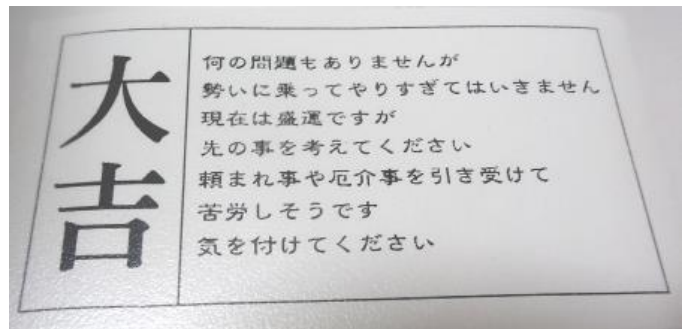 大吉
何の問題もありませんが
勢いに乗ってやりすぎてはいきません
現在は盛運ですが
先の事を考えてください
頼まれ事や厄介事を引き受けて
苦労しそうです
気を付けてください